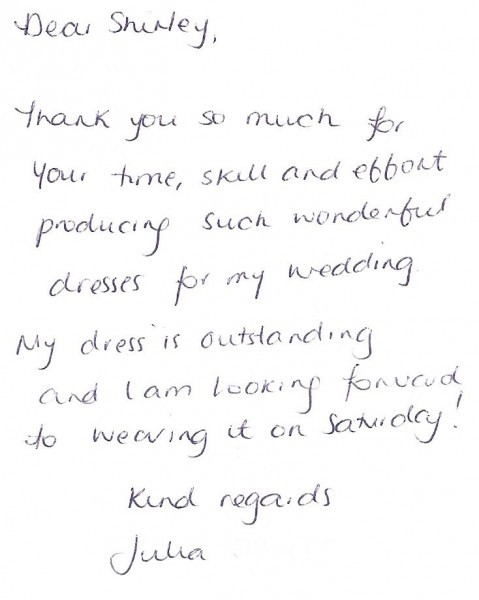 Dear Shirley,
Thank you so much for
your time, skill and effort
producing such wonderful
dresses for my wedding.
My dress is outstanding
and I am looking forward
to wearing it on Saturday!
Kind regards
Julia